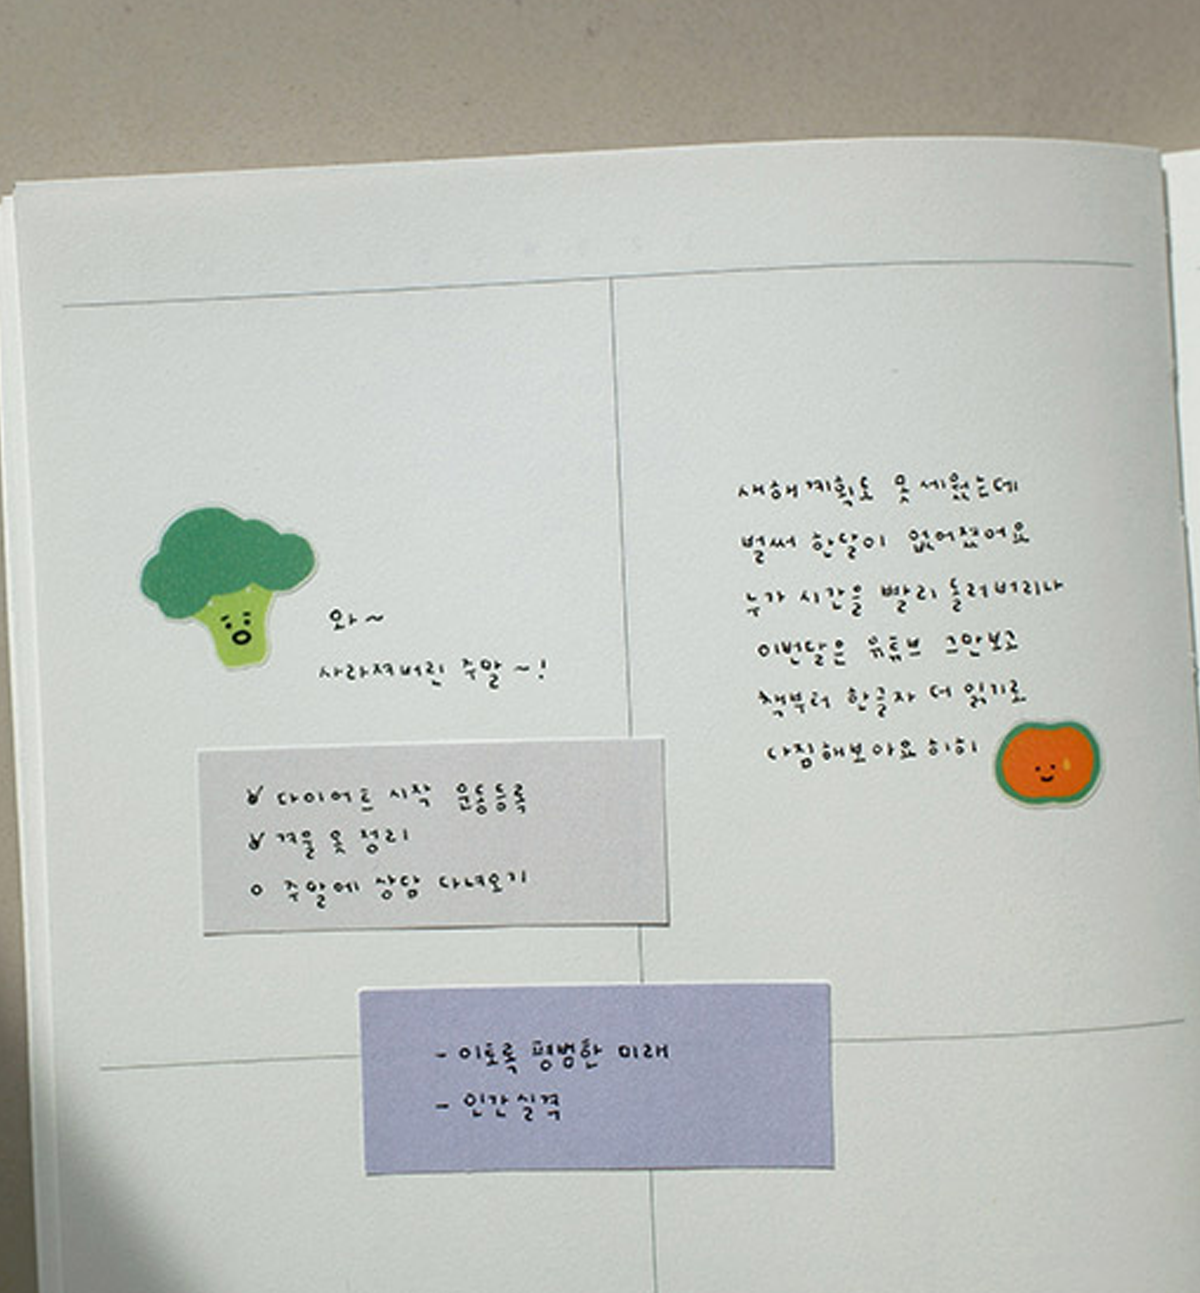 와~
사라져버린 주말~!
새해계획도 못 세웠는데
벌써 한달이 없어졌어요
누가 시간을 빨리 돌려버리나
이번달은 유튜브 그만보고
책부터 한글자 더 읽기로
다짐해보아요 히히
다이어트 시작 운동등록
겨울 옷 정리
주말에 상담 다녀오기
- 이토록 평범한 미래
- 인간실격